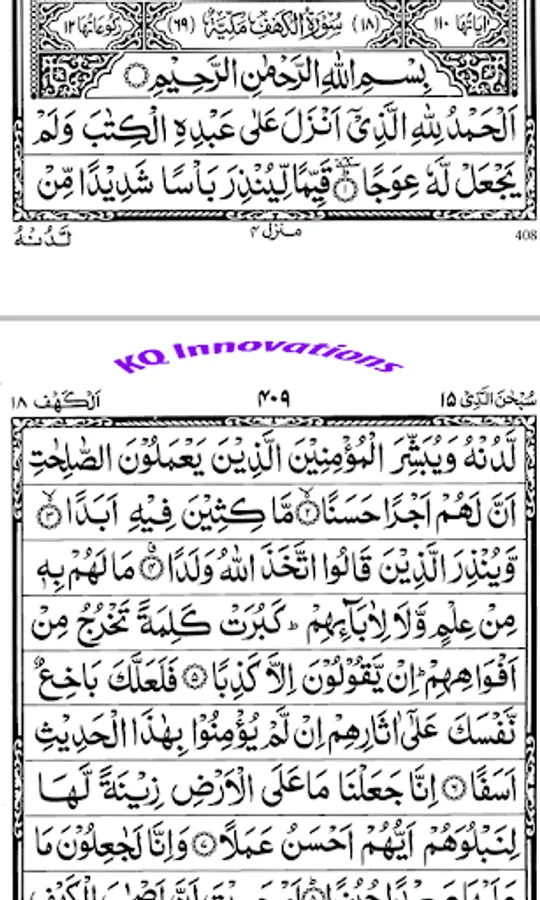 اٰيَاتُهَا ١١٠ (١٨) سُوۡرَةُ الۡكَهۡفِ مَكِّيَّةٌ (٦٩) رُكُوۡعَاتُهَا ١٢
بِسۡمِ اللّٰهِ الرَّحۡمٰنِ الرَّحِيۡمِ
اَلۡحَمۡدُ لِلّٰهِ الَّذِىۡۤ اَنۡزَلَ عَلٰى عَبۡدِهِ الۡكِتٰبَ وَلَمۡ
يَجۡعَلۡ لَّهٗ عِوَجًا ۜ ﴿١﴾ قَيِّمًا لِّيُنۡذِرَ بَاۡسًا شَدِيۡدًا مِّنۡ
لَّدُنۡهُ منزل ۴ 408
KQ Innovations
سُبۡحٰنَ الَّذِىۡ ١٥ ۴۰۹ اَلۡكَهۡف ١٨
لَّدُنۡهُ وَيُبَشِّرَ الۡمُؤۡمِنِيۡنَ الَّذِيۡنَ يَعۡمَلُوۡنَ الصّٰلِحٰتِ
اَنَّ لَهُمۡ اَجۡرًا حَسَنًا ۙ ﴿٢﴾ مَّا كِثِيۡنَ فِيۡهِ اَبَدًا ۙ ﴿٣﴾
وَّيُنۡذِرَ الَّذِيۡنَ قَالُوا اتَّخَذَ اللّٰهُ وَلَدًا ﴿٤﴾ مَا لَهُمۡ بِهٖ
مِنۡ عِلۡمٍ وَّلَا لِاٰبَآئِهِمۡ ؕ كَبُرَتۡ كَلِمَةً تَخۡرُجُ مِنۡ
اَفۡوَاهِهِمۡ ؕ اِنۡ يَّقُوۡلُوۡنَ اِلَّا كَذِبًا ﴿٥﴾ فَلَعَلَّكَ بَاخِعٌ
نَّفۡسَكَ عَلٰٓى اٰثَارِهِمۡ اِنۡ لَّمۡ يُؤۡمِنُوۡا بِهٰذَا الۡحَدِيۡثِ
اَسَفًا ﴿٦﴾ اِنَّا جَعَلۡنَا مَا عَلَى الۡاَرۡضِ زِيۡنَةً لَّهَا
لِنَبۡلُوَهُمۡ اَيُّهُمۡ اَحۡسَنُ عَمَلًا ﴿٧﴾ وَاِنَّا لَجٰعِلُوۡنَ مَا